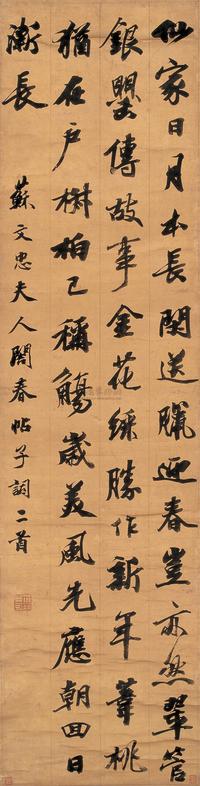 仙家日月本長閑送臘迎春豈亦然翠管
銀罌傳故事金花綵勝作新年葦桃
猶在戶椒柏已稱觴歲美風先應朝回日
漸長
蘇文忠夫人閣春帖子詞二首